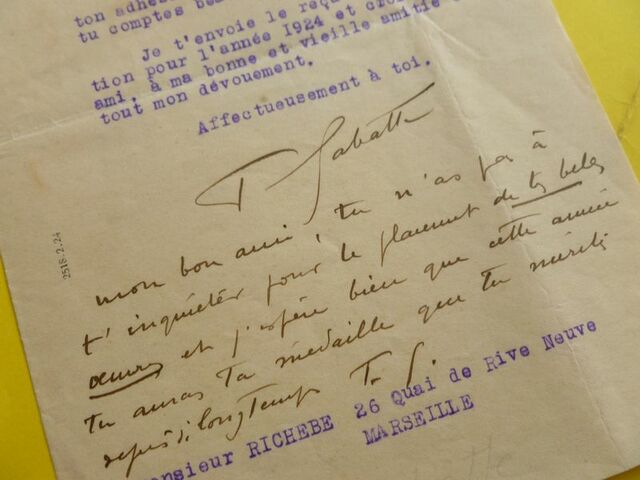 ton adhés
tu comptes be
Je t'envoie le reçu
tion pour l'année 1924 et croi
ami, à ma bonne et vieille amitié
tout mon dévouement.
Affectueusement à toi.
F Sabatté
mon bon ami, tu n'as pas à
t'inquiéter pour le placement de tes belles
œuvres et j'espère bien que cette année
tu auras ta médaille que tu mérites
depuis si longtemps F. S.
2518-2.24
onsieur RICHEBE 26 Quai de Rive Neuve
MARSEILLE